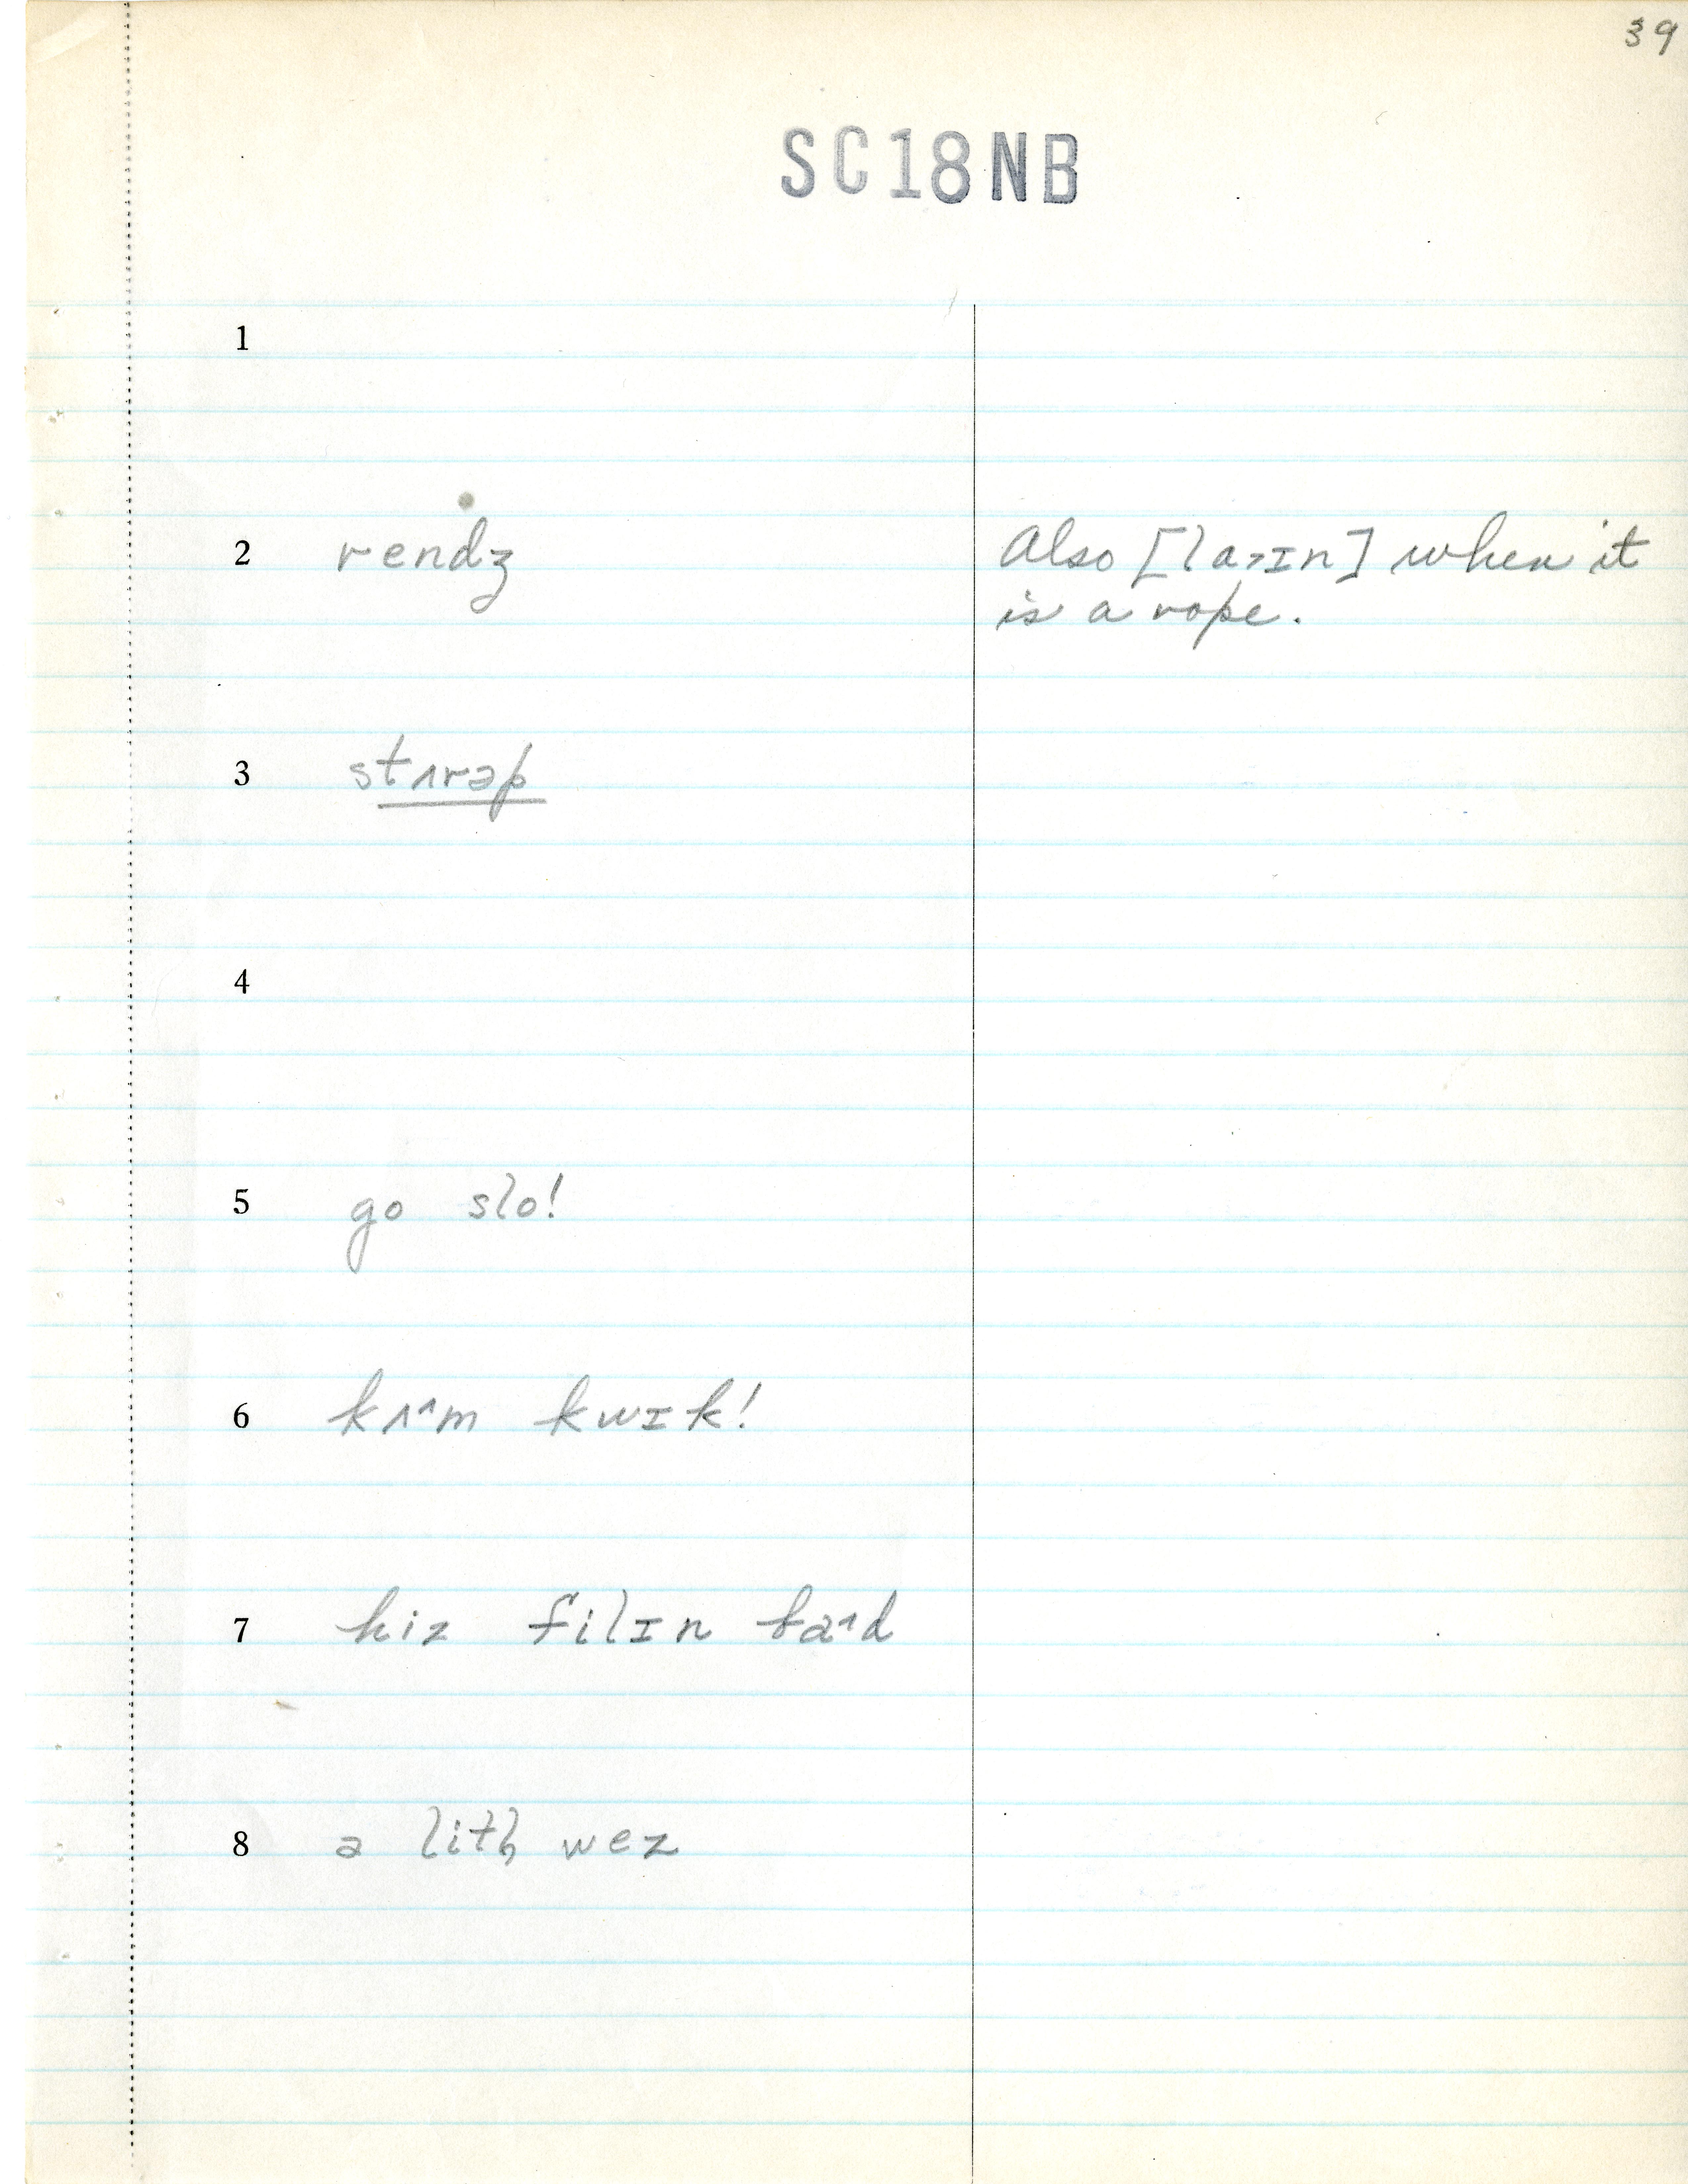 39
SC18NB
1
2 rendz Also [la˃ɪn] when it
is a rope.
3 stʌrəp
4
5 go slo!
6 kʌ^m kwɪk!
7 hiz filɪn ba^d
8 ə litḷ wez